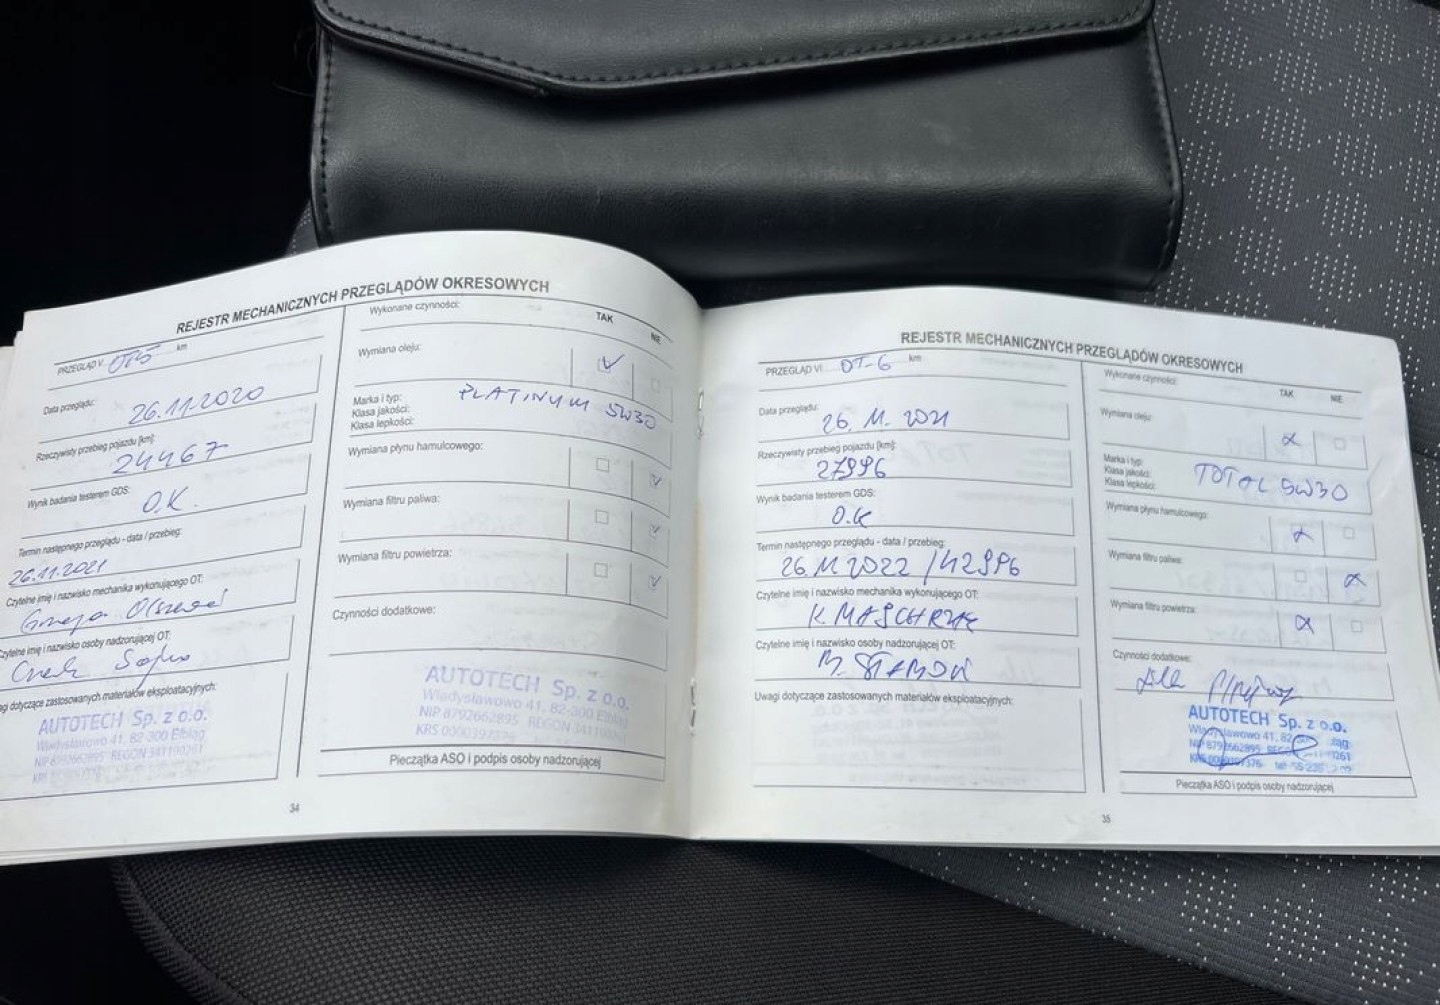 REJESTR MECHANICZNYCH PRZEGLĄDÓW OKRESOWYCH
PRZEGLĄD V OT5 km
Data przeglądu:
26.11.2020
Rzeczywisty przebieg pojazdu [km]:
24467
Wynik badania testerem GDS:
O.K.
Termin następnego przeglądu - data / przebieg:
26.11.2021
Czytelne imię i nazwisko mechanika wykonującego OT:
Czytelne imię i nazwisko osoby nadzorującej OT:
Uwagi dotyczące zastosowanych materiałów eksploatacyjnych:
AUTOTECH Sp. z o.o.
Władysławowo 41, 82-300 Elbląg
NIP 8792662895 REGON 341190261
Wykonane czynności:
TAK NIE
Wymiana oleju:
Marka i typ: PLATINUM 5W30
Klasa jakości:
Klasa lepkości:
Wymiana płynu hamulcowego:
Wymiana filtru paliwa:
Wymiana filtru powietrza:
Czynności dodatkowe:
AUTOTECH Sp. z o.o.
Władysławowo 41, 82-300 Elbląg
NIP 8792662895 REGON 341190261
Pieczątka ASO i podpis osoby nadzorującej
34
REJESTR MECHANICZNYCH PRZEGLĄDÓW OKRESOWYCH
PRZEGLĄD VI OT-6 km
Data przeglądu:
26.11.2021
Rzeczywisty przebieg pojazdu [km]:
27996
Wynik badania testerem GDS:
O.K
Termin następnego przeglądu - data / przebieg:
26.11.2022 / 42996
Czytelne imię i nazwisko mechanika wykonującego OT:
Czytelne imię i nazwisko osoby nadzorującej OT:
Uwagi dotyczące zastosowanych materiałów eksploatacyjnych:
Wykonane czynności:
TAK NIE
Wymiana oleju:
Marka i typ: TOTAL 5W30
Klasa jakości:
Klasa lepkości:
Wymiana płynu hamulcowego:
Wymiana filtru paliwa:
Wymiana filtru powietrza:
Czynności dodatkowe:
AUTOTECH Sp. z o.o.
Władysławowo 41,
Pieczątka ASO i podpis osoby nadzorującej
35